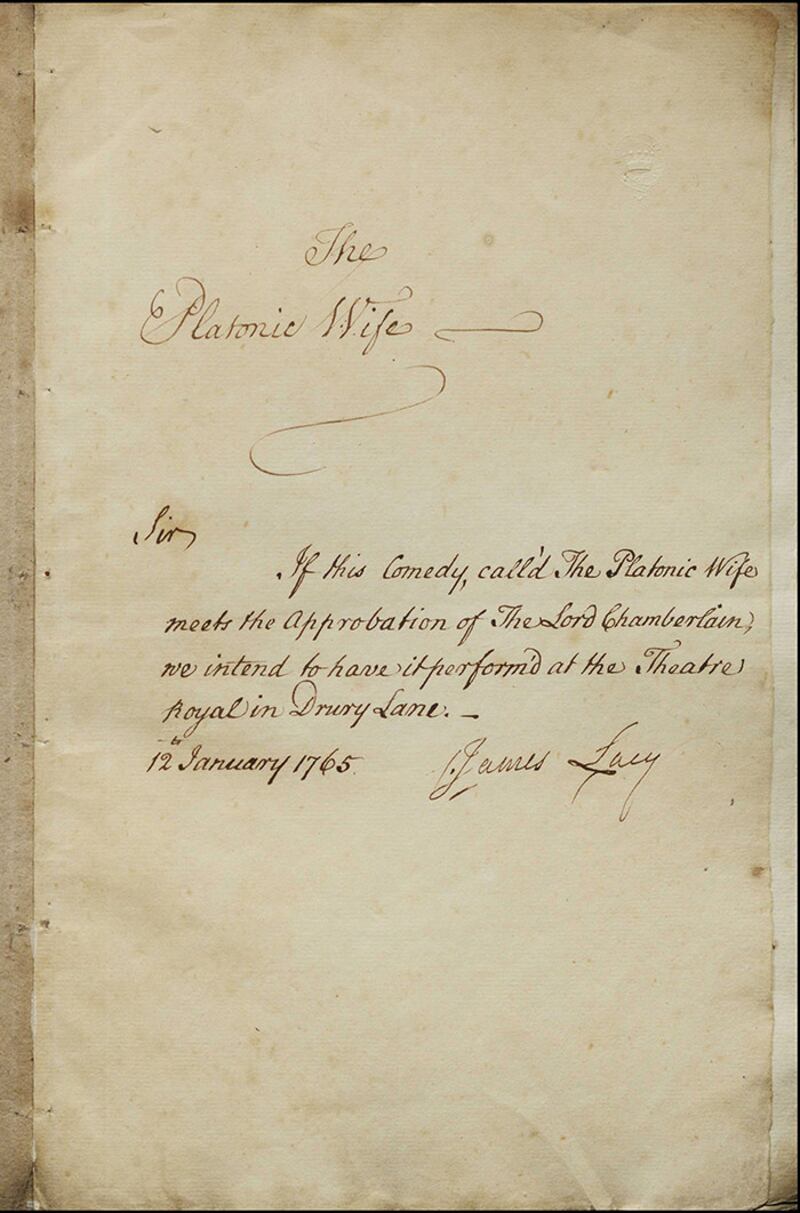 The
Platonic Wife
Sir
If this Comedy, call'd The Platonic Wife
meets the Approbation of The Lord Chamberlain,
we intend to have it perform'd at the Theatre
Royal in Drury Lane. –
12th January 1765. James Lacy